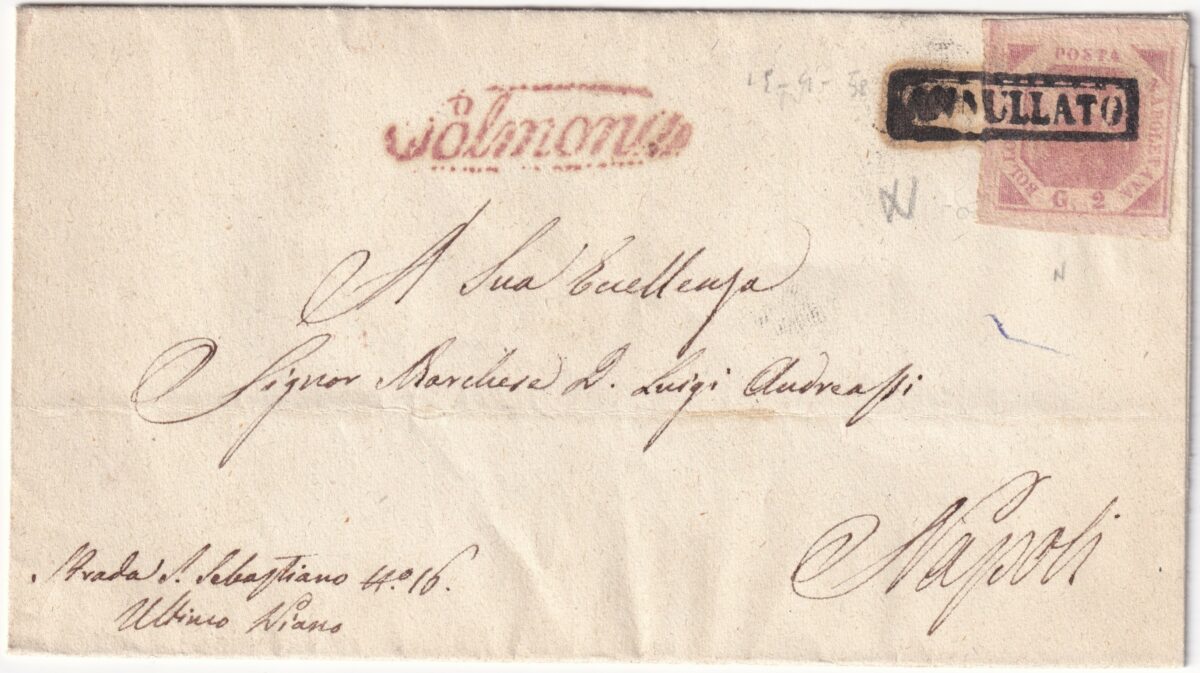 Solmona
POSTA
NAPOLETANA
BOLLO
G. 2
ANNULLATO
A Sua Eccellenza
Signor Marchese D. Luigi Andreassi
Napoli
Strada S. Sebastiano N.º 16.
Ultimo Piano